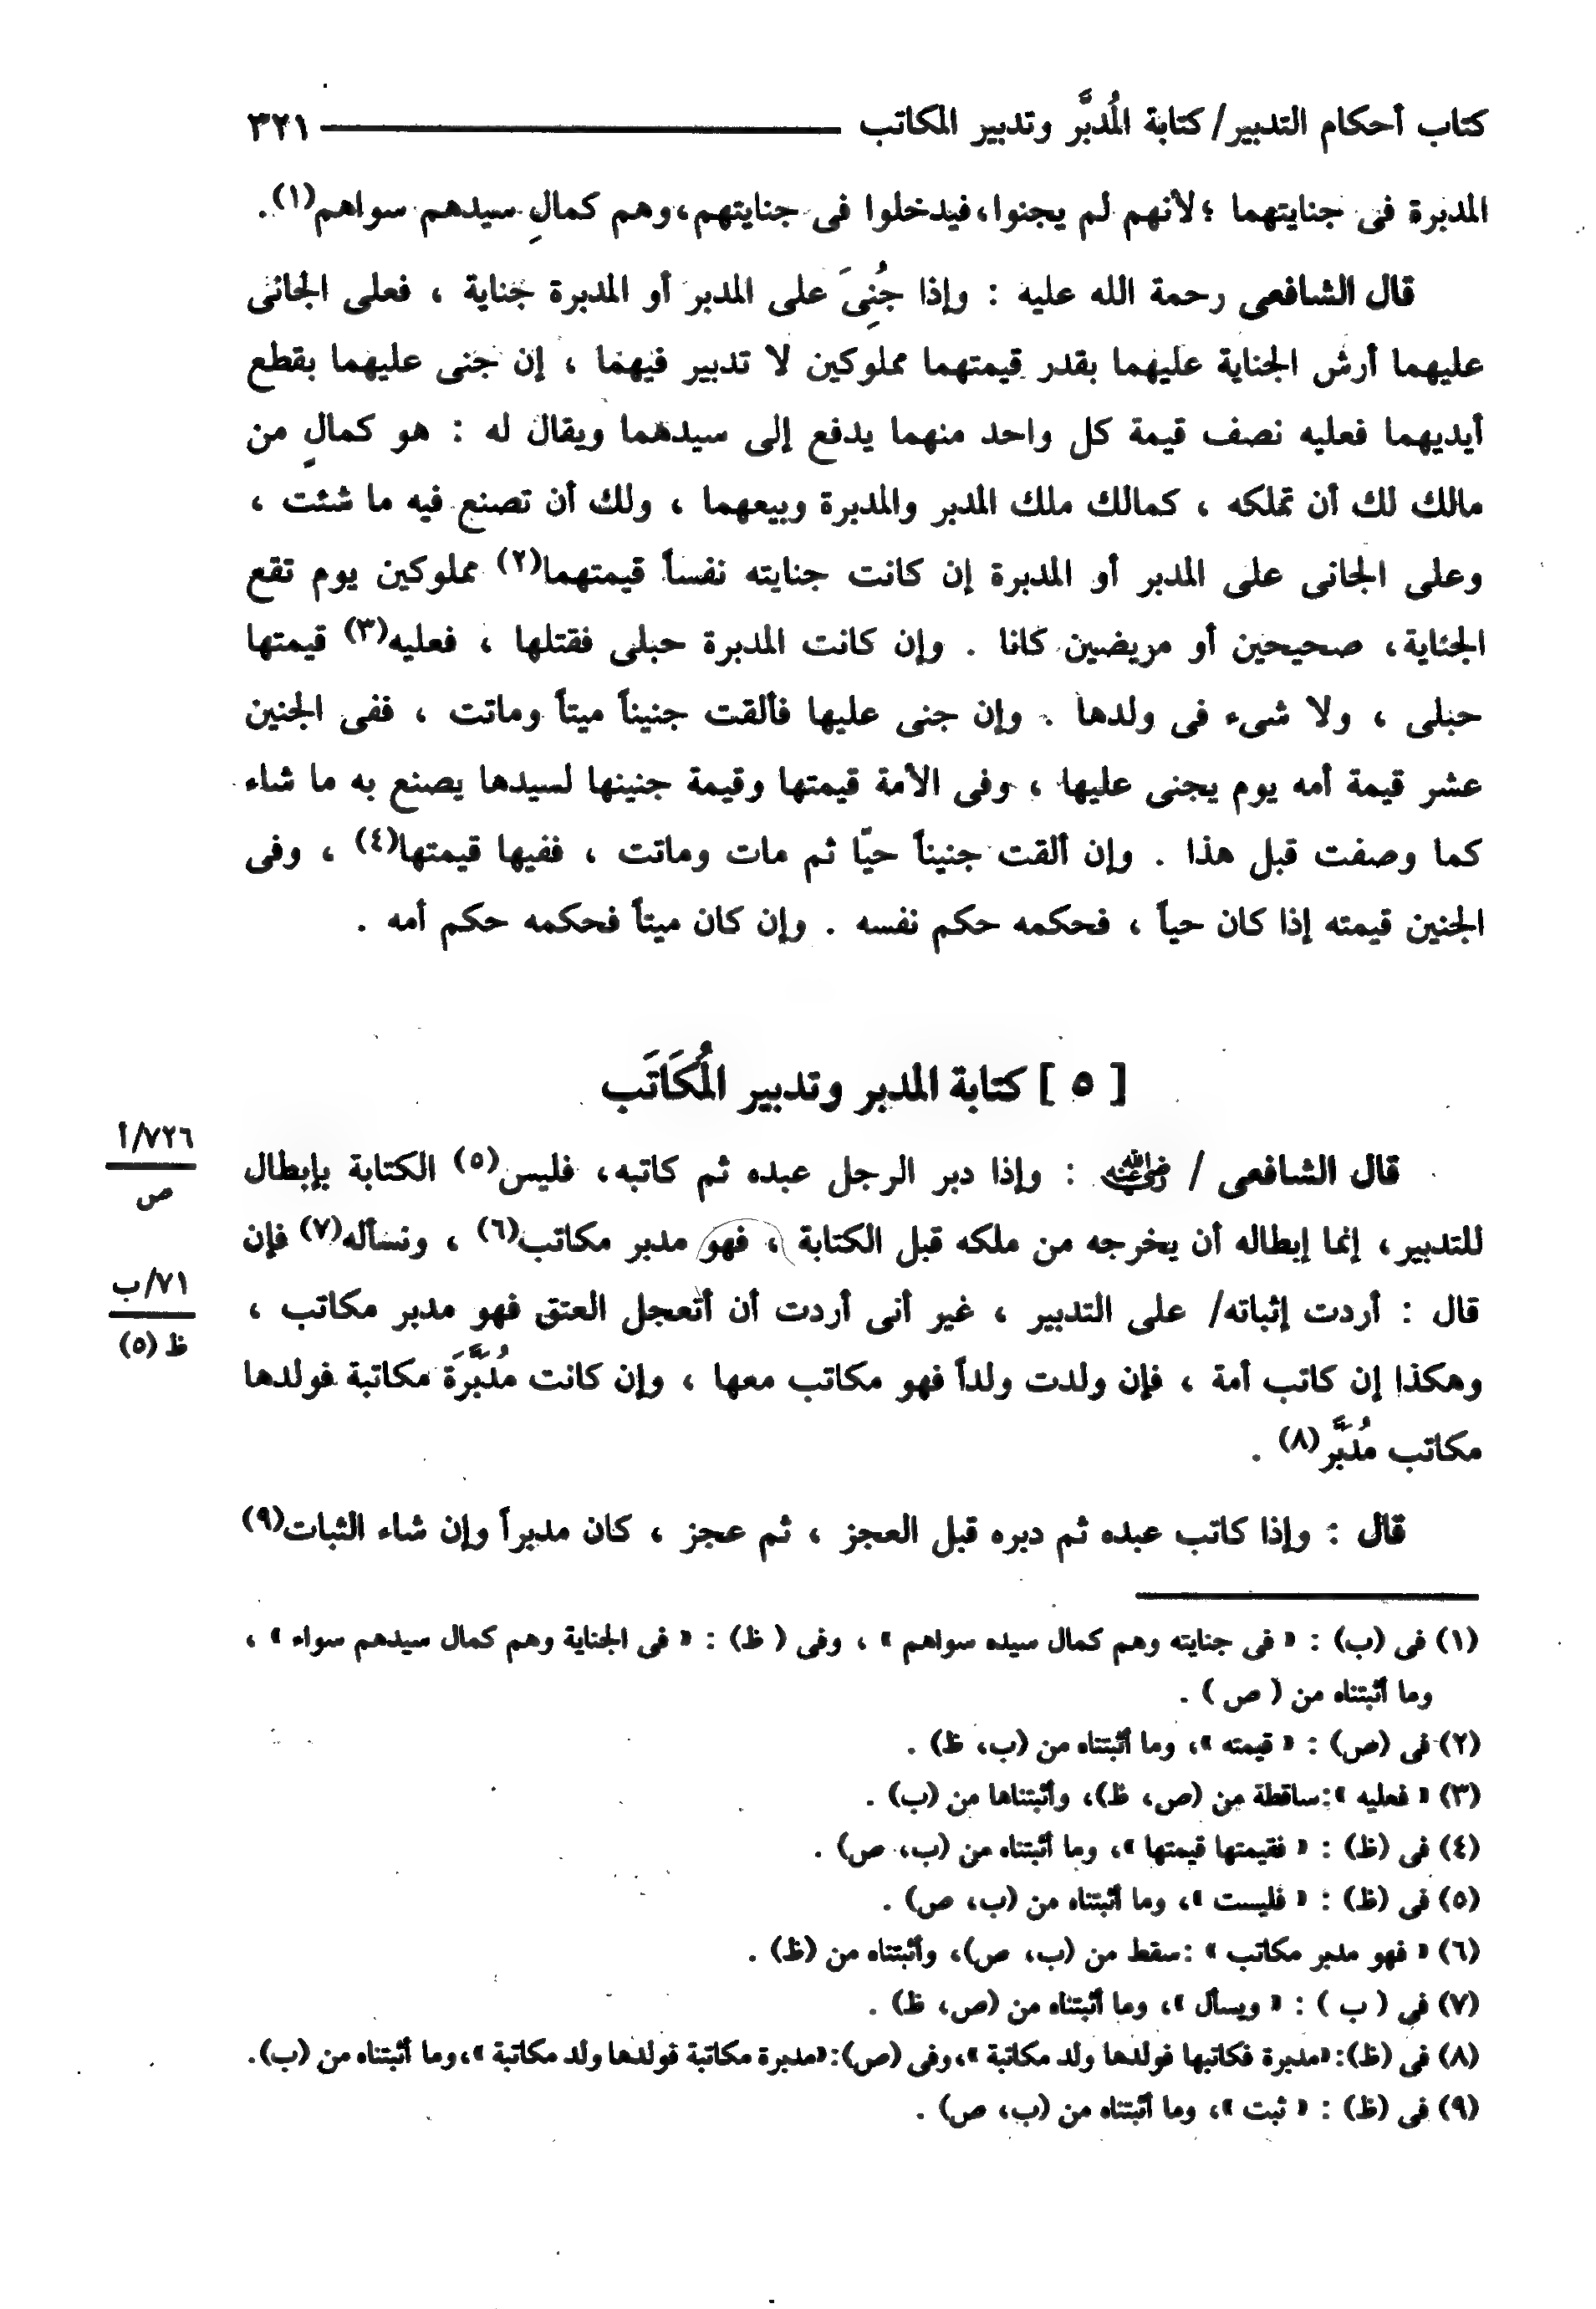 كتاب أحكام التدبير/ كتابة المُدبَّر وتدبير المكاتب ٣٢١
المدبرة فى جنايتهما ؛ لأنهم لم يجنوا، فيدخلوا فى جنايتهم، وهم كمالِ سيدهم سواهم(١).
قال الشافعى رحمة الله عليه : وإذا جُنِىَ على المدبر أو المدبرة جناية ، فعلى الجانى
عليهما أرش الجناية عليهما بقدر قيمتهما مملوكين لا تدبير فيهما ، إن جنى عليهما بقطع
أيديهما فعليه نصف قيمة كل واحد منهما يدفع إلى سيدهما ويقال له : هو كمالٍ من
مالك لك أن تملكه ، كمالك ملك المدبر والمدبرة وبيعهما ، ولك أن تصنع فيه ما شئت ،
وعلى الجانى على المدبر أو المدبرة إن كانت جنايته نفساً قيمتهما(٢) مملوكين يوم تقع
الجناية، صحيحين أو مريضين كانا . وإن كانت المدبرة حبلى فقتلها ، فعليه(٣) قيمتها
حبلى ، ولا شىء فى ولدها . وإن جنى عليها فألقت جنيناً ميتاً وماتت ، ففى الجنين
عشر قيمة أمه يوم يجنى عليها ، وفى الأمة قيمتها وقيمة جنينها لسيدها يصنع به ما شاء
كما وصفت قبل هذا . وإن ألقت جنيناً حيّا ثم مات وماتت ، ففيها قيمتها(٤) ، وفى
الجنين قيمته إذا كان حياً ، فحكمه حكم نفسه . وإن كان ميتاً فحكمه حكم أمه .
[ ٥ ] كتابة المدبر وتدبير المُكَاتَب
قال الشافعى / رضي الله عنه : وإذا دبر الرجل عبده ثم كاتبه، فليس(٥) الكتابة بإبطال
٧٢٦/أ
ص
للتدبير، إنما إبطاله أن يخرجه من ملكه قبل الكتابة ، فهو مدبر مكاتب(٦) ، ونسأله(٧) فإن
قال : أردت إثباته/ على التدبير ، غير أنى أردت أن أتعجل العتق فهو مدبر مكاتب ،
٧١/ب
ظ (٥)
وهكذا إن كاتب أمة ، فإن ولدت ولداً فهو مكاتب معها ، وإن كانت مُدَبَّرَة مكاتبة فولدها
مكاتب مُدَبَّر(٨) .
قال : وإذا كاتب عبده ثم دبره قبل العجز ، ثم عجز ، كان مدبراً وإن شاء الثبات(٩)
(١) فى (ب) : « فى جنايته وهم كمال سيده سواهم » ، وفى ( ظ) : « فى الجناية وهم كمال سيدهم سواء » ،
وما أثبتناه من ( ص ) .
(٢) فى (ص) : « قيمته »، وما أثبتناه من (ب، ظ) .
(٣) « فعليه »:ساقطة من (ص، ظ)، وأثبتناها من (ب) .
(٤) فى (ظ) : « فقيمتها قيمتها »، وما أثبتناه من (ب، ص) .
(٥) فى (ظ) : « فليست »، وما أثبتناه من (ب، ص) .
(٦) « فهو مدبر مكاتب » :سقط من (ب، ص)، وأثبتناه من (ظ) .
(٧) فى ( ب ) : « ويسأل »، وما أثبتناه من (ص، ظ) .
(٨) فى (ظ):«مدبرة فكاتبها فولدها ولد مكاتبة »،وفى (ص):«مدبرة مكاتبة فولدها ولد مكاتبة »،وما أثبتناه من (ب).
(٩) فى (ظ) : « ثبت »، وما أثبتناه من (ب، ص) .